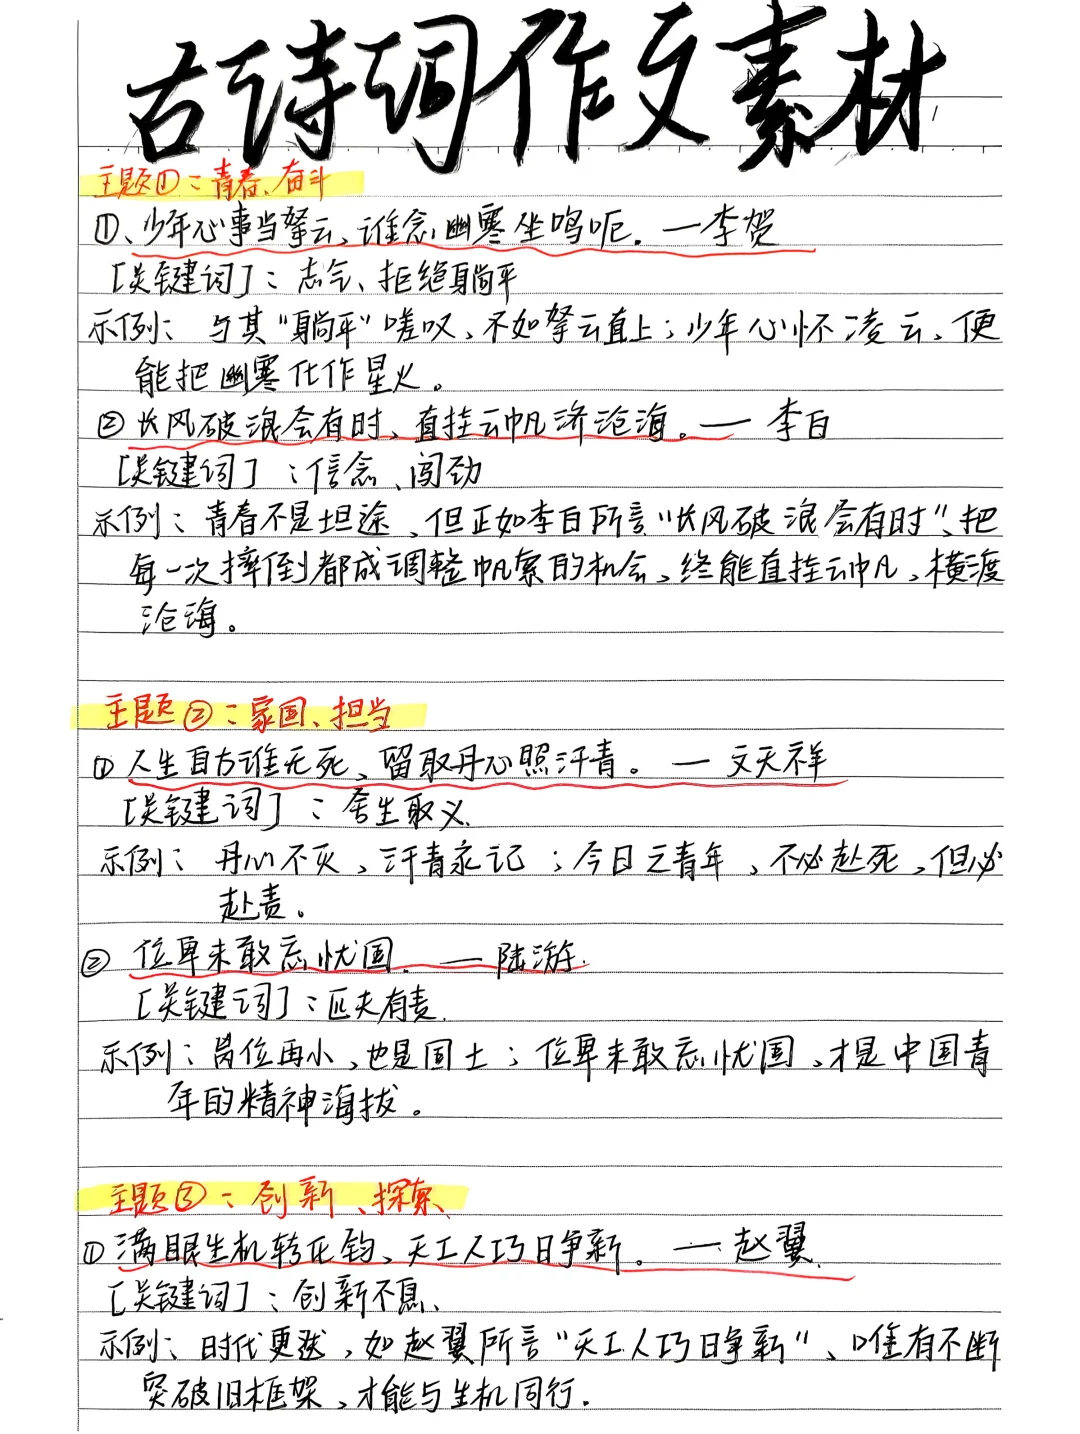 古诗词作文素材
主题①：青春、奋斗
①、少年心事当拏云、谁念幽寒坐鸣呃。—李贺
［关键词］：志气、拒绝躺平
示例：与其"躺平"嗟叹、不如拏云直上；少年心怀凌云、便
能把幽寒化作星火。
②长风破浪会有时、直挂云帆济沧海。—李白
［关键词］：信念、闯劲
示例：青春不是坦途、但正如李白所言"长风破浪会有时"、把
每一次摔倒都成调整帆索的机会、终能直挂云帆，横渡
沧海。
主题②：家国、担当
①人生自古谁无死、留取丹心照汗青。—文天祥
［关键词］：舍生取义.
示例：丹心不灭、汗青永记；今日之青年、不必赴死、但必
赴责。
②位卑未敢忘忧国.—陆游.
［关键词］：匹夫有责.
示例：岗位再小、也是国土；位卑未敢忘忧国、才是中国青
年的精神海拔。
主题③：创新、探索
①满眼生机转化钧、天工人巧日争新。—赵翼.
［关键词］：创新不息、
示例：时代更迭、如赵翼所言"天工人巧日争新"、唯有不断
突破旧框架、才能与生机同行.